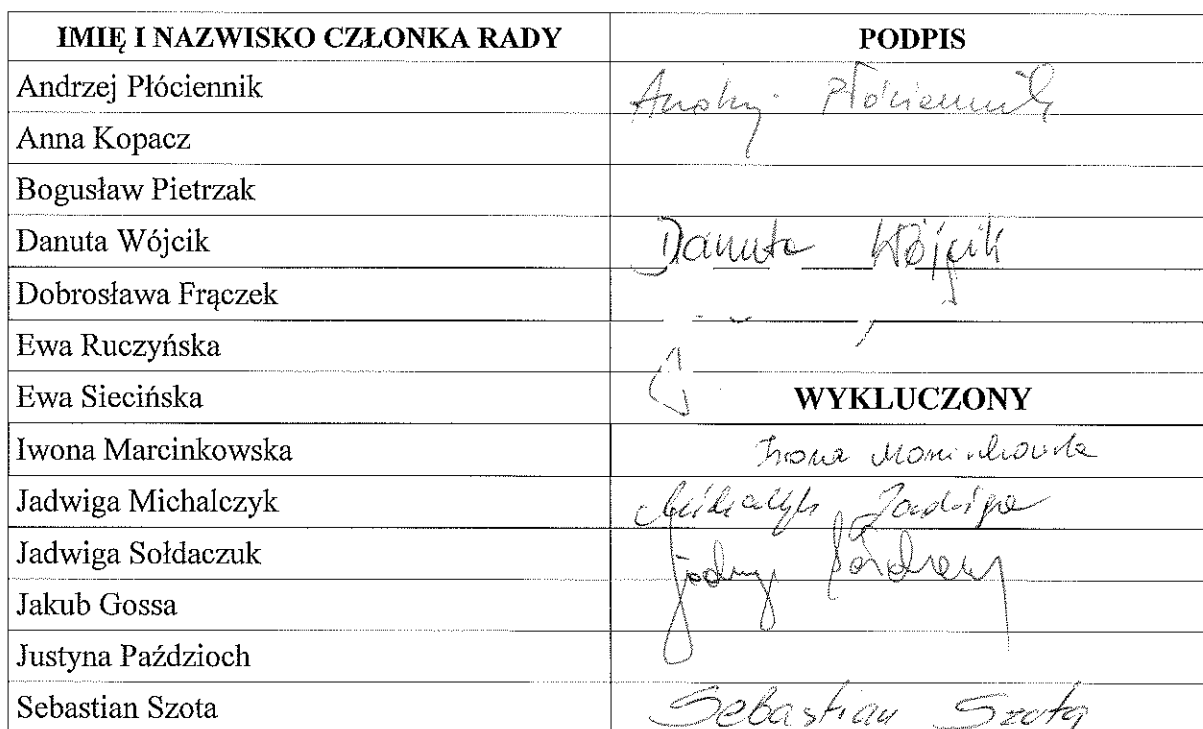 IMIĘ I NAZWISKO CZŁONKA RADY PODPIS
Andrzej Płóciennik Płóciennik
Anna Kopacz
Bogusław Pietrzak
Danuta Wójcik Danuta Wójcik
Dobrosława Frączek
Ewa Ruczyńska
Ewa Siecińska WYKLUCZONY
Iwona Marcinkowska Iwona Marcinkowska
Jadwiga Michalczyk Michalczyk Jadwiga
Jadwiga Sołdaczuk
Jakub Gossa
Justyna Paździoch
Sebastian Szota Sebastian Szota